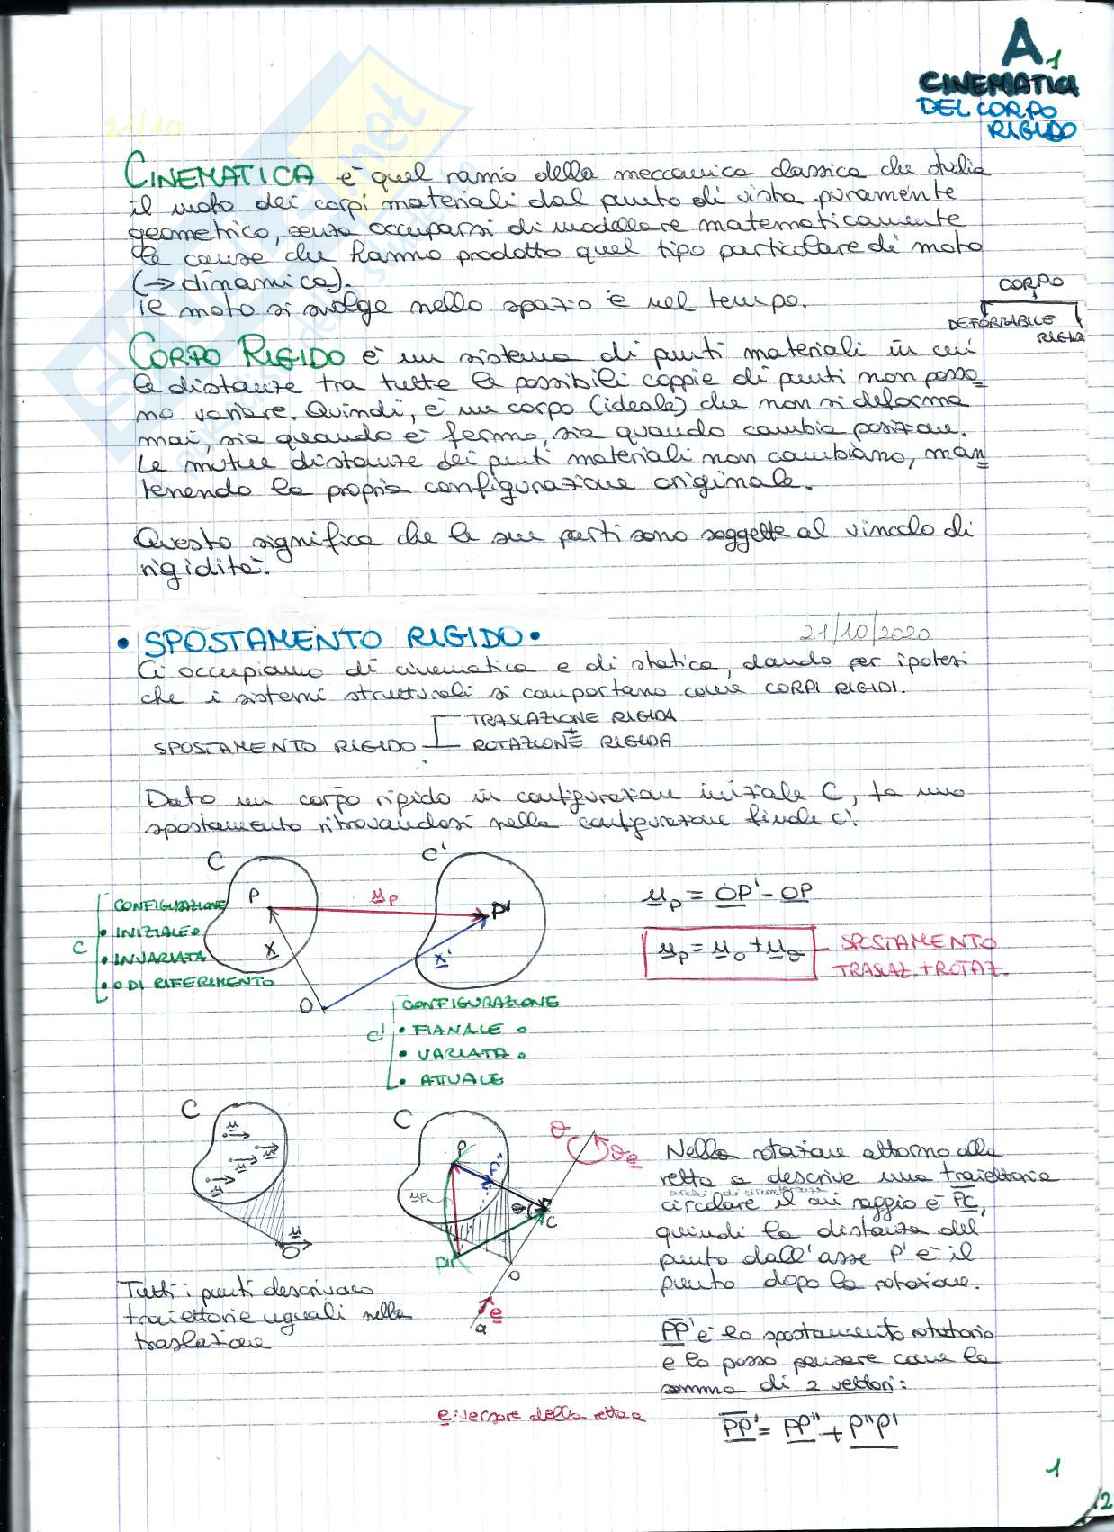 A1
CINEMATICA
DEL CORPO
RIGIDO
21/10
CINEMATICA è quel ramo della meccanica classica che studia
il moto dei corpi materiali dal punto di vista puramente
geometrico, senza occuparsi di modellare matematicamente
le cause che hanno prodotto quel tipo particolare di moto
(→ dinamica).
Il moto si svolge nello spazio e nel tempo.
CORPO
DEFORMABILE
RIGIDO
CORPO RIGIDO è un sistema di punti materiali in cui
le distanze tra tutte le possibili coppie di punti non posso=
no variare. Quindi, è un corpo (ideale) che non si deforma
mai, sia quando è fermo, sia quando cambia posizione.
Le mutue distanze dei punti materiali non cambiano, man=
tenendo la propria configurazione originale.
Questo significa che le sue parti sono soggette al vincolo di
rigidità.
• SPOSTAMENTO RIGIDO •
21/10/2020
Ci occupiamo di cinematica e di statica, dando per ipotesi
che i sistemi strutturali si comportano come CORPI RIGIDI.
SPOSTAMENTO RIGIDO
TRASLAZIONE RIGIDA
+
ROTAZIONE RIGIDA
Dato un corpo rigido in configurazione iniziale C, fa uno
spostamento ritrovandosi nella configurazione finale C'.
C
C'
P
u_P
P'
x
x'
O
C
CONFIGURAZIONE
• INIZIALE o
• INVARIATA
• o DI RIFERIMENTO
u_P = OP' - OP
u_P = u_o + u_θ
SPOSTAMENTO
TRASLAZ. + ROTAZ.
C'
CONFIGURAZIONE
• FIANALE o
• VARIATA o
• ATTUALE
C
u
u
u
u
u
O
Tutti i punti descrivono
traiettorie uguali nella
traslazione
C
P
P''
u_P
P'
θ
C
O
θ
θe
e
a
e: versore della retta a
Nella rotazione attorno alla
retta a descrive una traiettoria
archi di circonferenza
circolare il cui raggio è PC,
quindi la distanza del
punto dall'asse P' è il
punto dopo la rotazione.
PP' è lo spostamento rotatorio
e lo posso pensare come la
somma di 2 vettori:
PP' = PP'' + P''P'
1
2